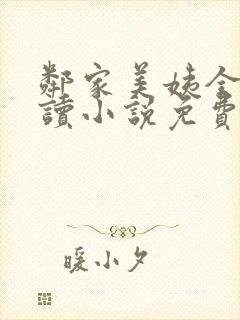 鄰家美姨全
讀小說免費
暖小夕